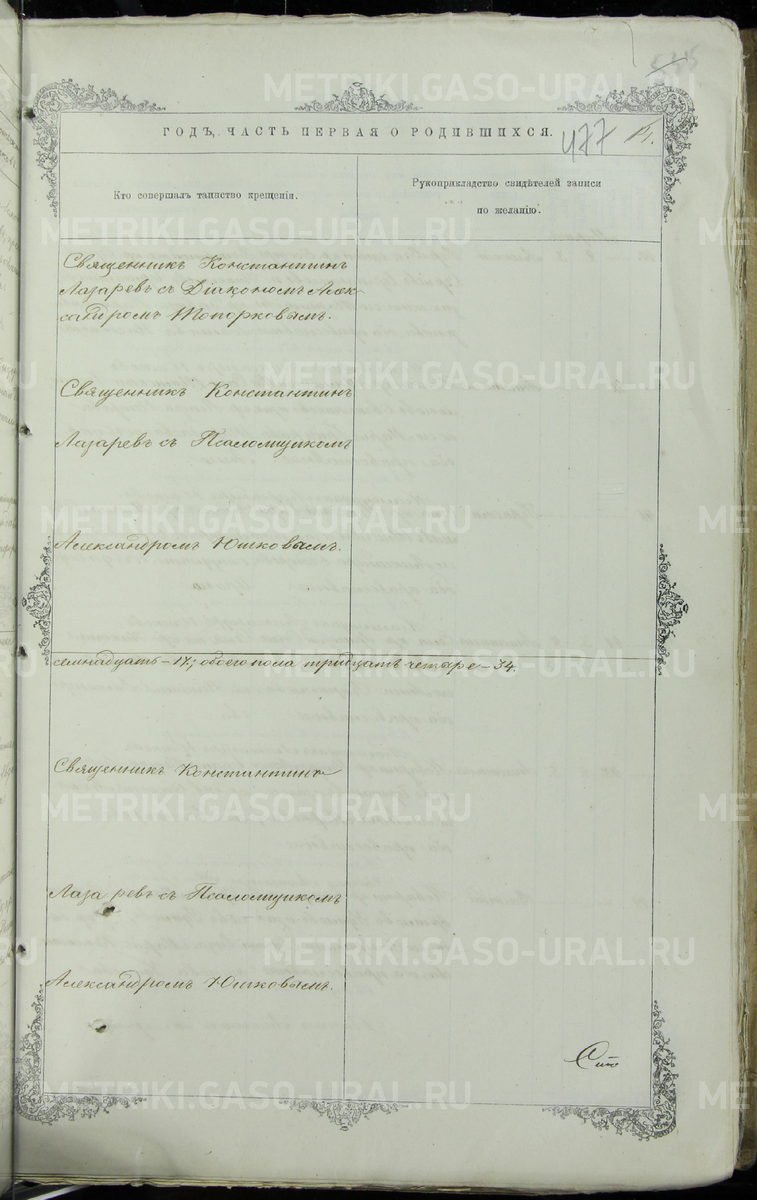 ГОДЪ, ЧАСТЬ ПЕРВАЯ О РОДИВШИХСЯ.
477
Кто совершалъ таинство крещенія.
Рукоприкладство свидѣтелей записи
по желанію.
Священникъ Константинъ
Лазаревъ съ Діакономъ Алек-
сандромъ Топорковымъ.
Священникъ Константинъ
Лазаревъ съ Псаломщикомъ
Александромъ Юшковымъ.
семнадцать - 17; обоего пола тридцать четыре - 34.
Священникъ Константинъ
Лазаревъ съ Псаломщикомъ
Александромъ Юшковымъ.
METRIKI.GASO-URAL.RU